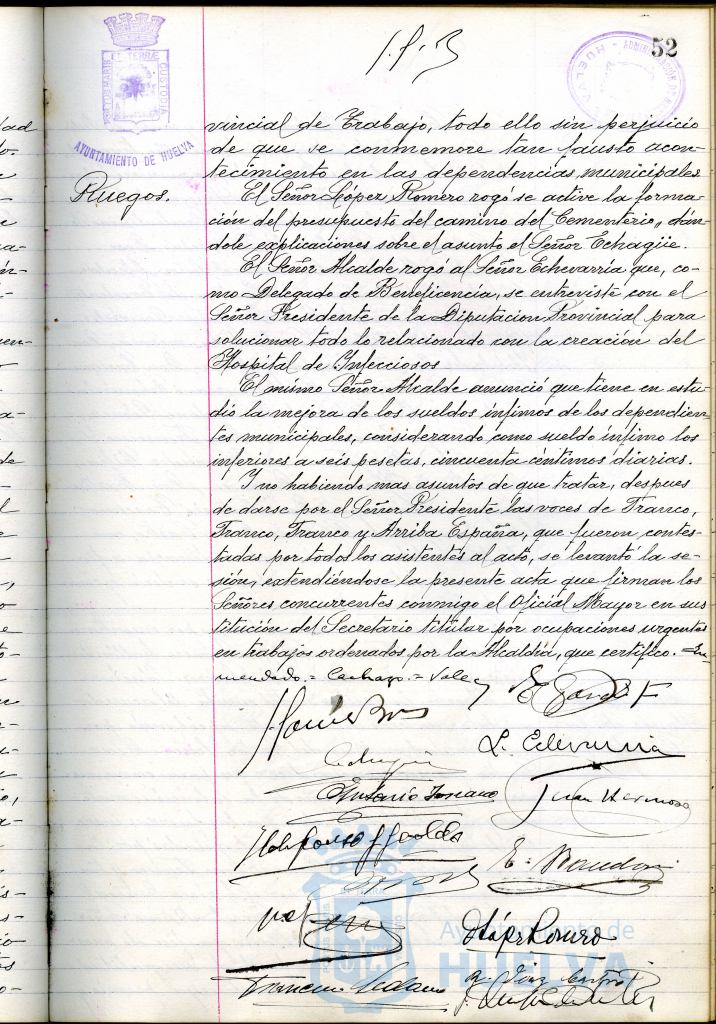 52
PORTUS MARIS ET TERRÆ CUSTODIA
AYUNTAMIENTO DE HUELVA
Ruegos.
vincial de Trabajo, todo ello sin perjuicio
de que se conmemore tan fausto acon-
tecimiento en las dependencias municipales
El Señor López Romero rogó se active la forma-
ción del presupuesto del camino del Cementerio, dán-
dole explicaciones sobre el asunto el Señor Echagüe.
El Señor Alcalde rogó al Señor Echevarría que, co-
mo Delegado de Beneficencia, se entreviste con el
Señor Presidente de la Diputacion Provincial para
solucionar todo lo relacionado con la creación del
Hospital de Infecciosos
El mismo Señor Alcalde anunció que tiene en estu-
dio la mejora de los sueldos ínfimos de los dependien-
tes municipales, considerando como sueldo ínfimo los
inferiores a seis pesetas, cincuenta céntimos diarias.
Y no habiendo mas asuntos de que tratar, despues
de darse por el Señor Presidente las voces de Franco,
Franco, Franco y Arriba España, que fueron contes-
tadas por todos los asistentes al acto, se levantó la se-
sion, extendiéndose la presente acta que firman los
Señores concurrentes conmigo el Oficial Mayor en sus
titución del Secretario titular por ocupaciones urgentes
en trabajos ordenados por la Alcaldía, que certifico.= En-
mendado.= = Vale
L. Echevarria
Antonio Toscano
Juan Hermoso
Ildefonso
López Romero
Francisco
Ayuntamiento de
HUELVA